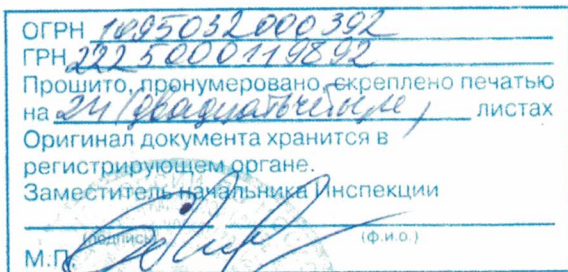 ОГРН 1095032000392
ГРН 2225000119892
Прошито, пронумеровано, скреплено печатью
на 24 (двадцать четыре) листах
Оригинал документа хранится в
регистрирующем органе.
Заместитель начальника Инспекции
(подпись) (ф.и.о.)
М.П.